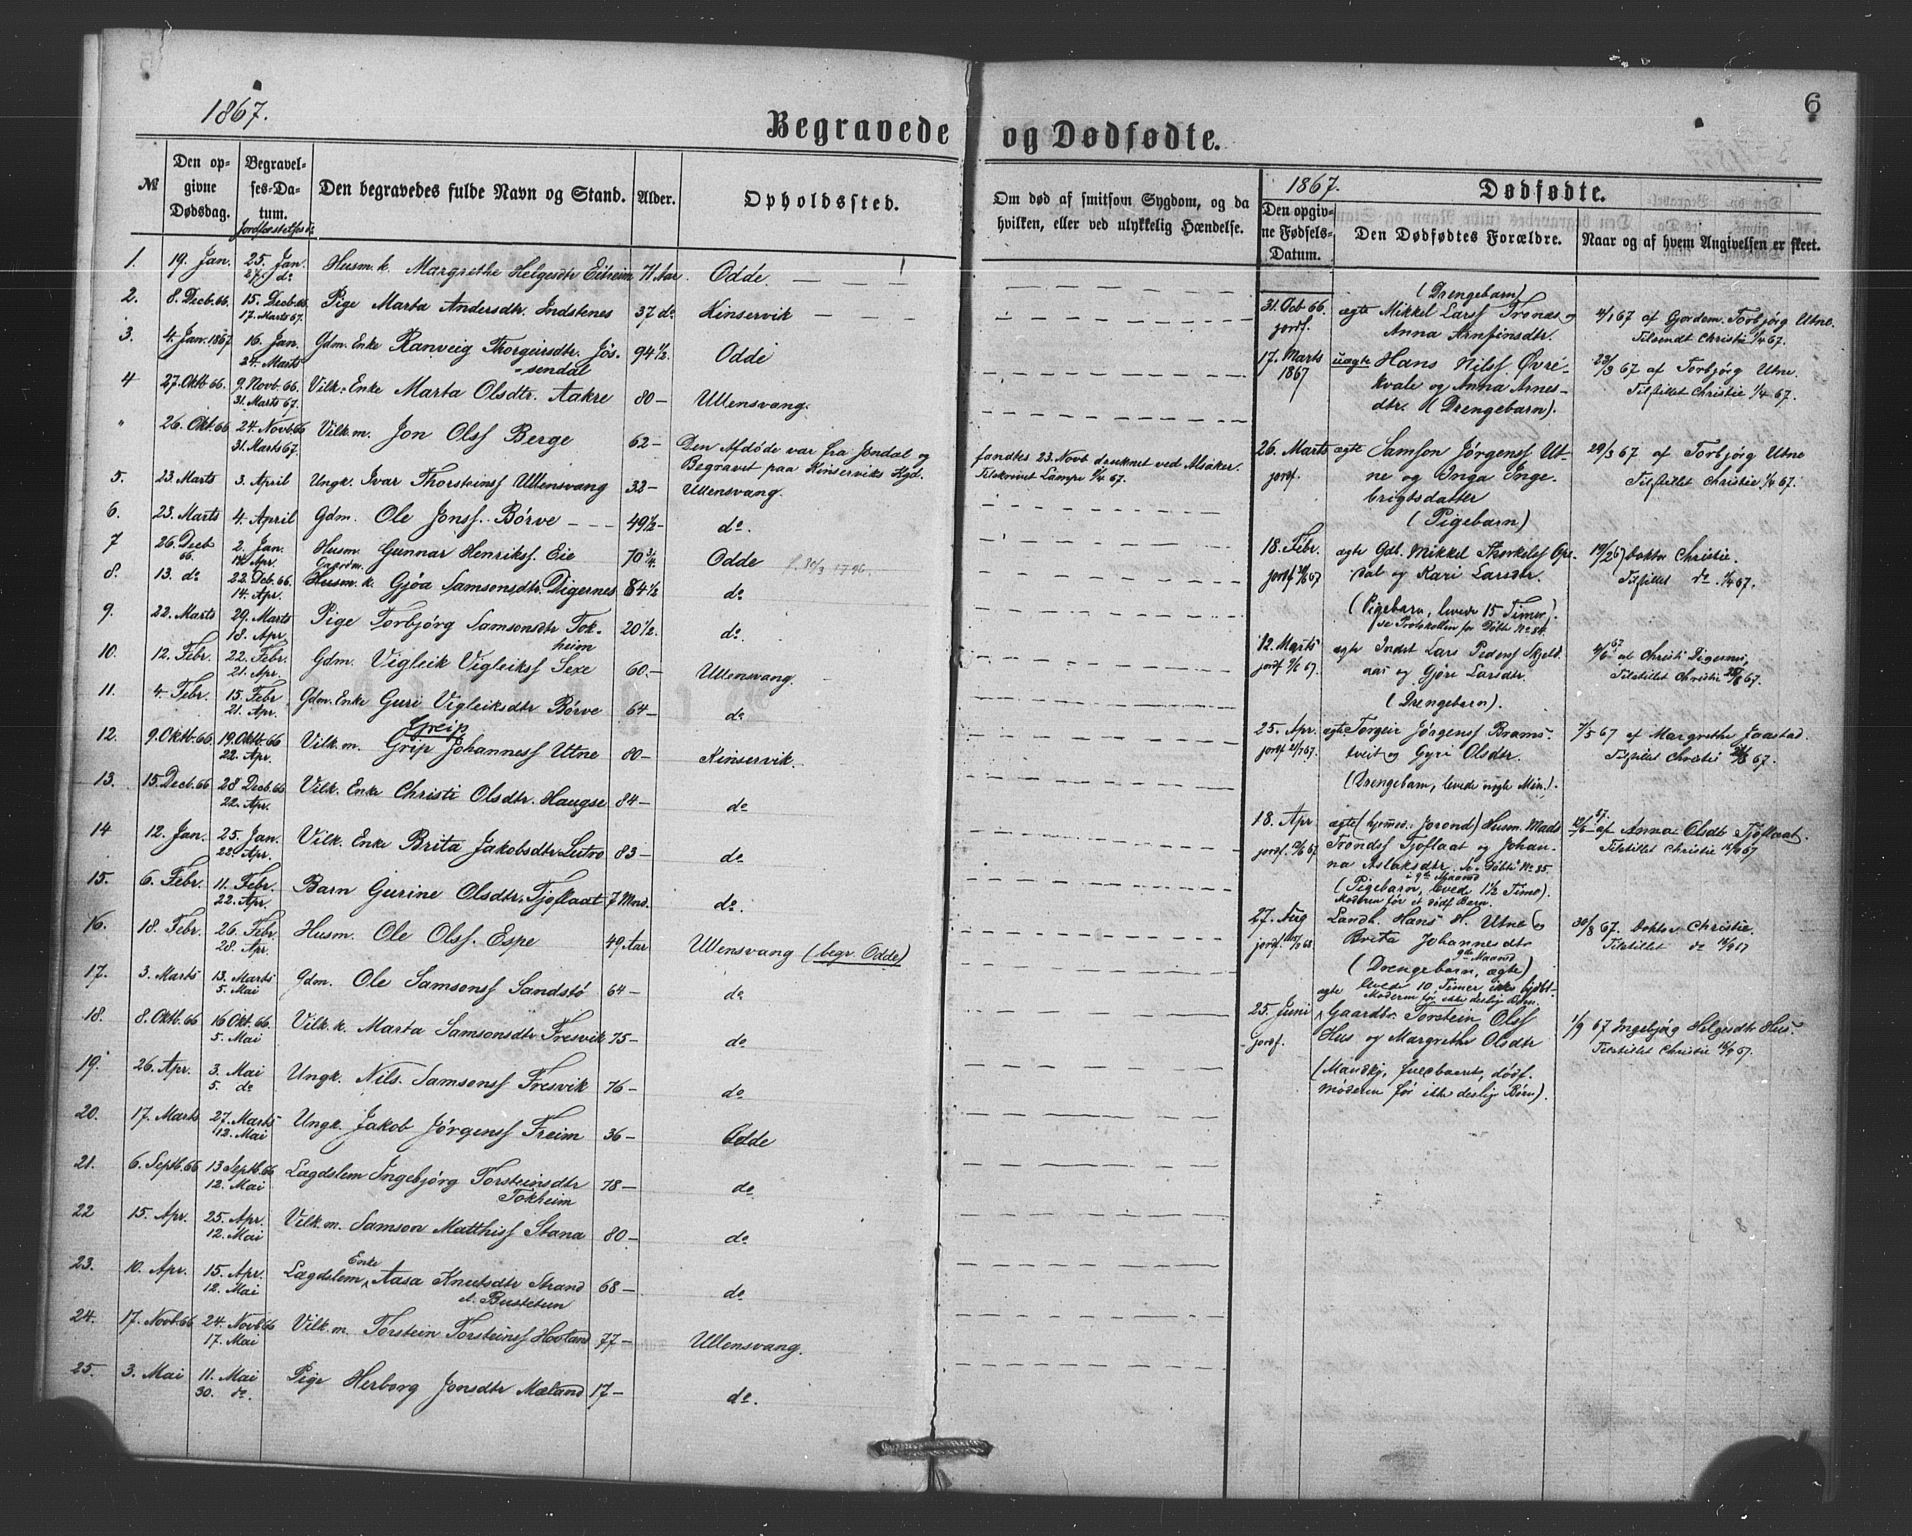 1867.
6
Begravede og Dødfødte.
№
Den opgivne Dødsdag.
Begravelses-Datum.
Jordfæstelses d:
Den begravedes fulde Navn og Stand.
Alder.
Opholdssted.
Om død af smitsom Sygdom, og da hvilken, eller ved ulykkelig Hændelse.
1. 19. Jan. 25. Jan. Husm. k. Margrethe Helgesdtr Eitreim 71 Aar Odde
27. do
2. 8. Decb. 66. 15. Decb. 66 Pige Marta Andersdtr. Indstenes 37 do Kinservik
17. Marts 67.
3. 4. Jan. 1867 16. Jan. Gdm. Enke Ranveig Thorgeirsdtr. Jøs- 94 1/2. Odde
24. Marts sendal
4 27. Oktb 66 9. Novb. 66. Vilk. Enke Marta Olsdtr. Aakre 80 — Ullensvang.
31. Marts 67.
" 26. Okt. 66 24. Novb. 66 Vilk. m. Jon Olsf Berge 62 — Den Afdøde var fra Jondal og fandtes 23. Novb druknet ved Alsaker.
31. Marts 67. Begravet paa Kinserviks Kgd.
5. 23. Marts 3. April Ungk. Ivar Thorsteinsf Ullensvang 32 — Ullensvang.
6. 23. Marts 4. April Gdm. Ole Jonsf. Børve 49 1/2 — do.
7 26. Decb 66. 2. Jan. Husm. Gunnar Henriksf. Eie 70 3/4. Odde
14. Apr.
8. 13. do 22. Deb. 66. Husm. k. Gjøa Samsonsdtr. Digernes 84 1/2 do
14. Apr.
9. 22. Marts 29. Marts Pige Torbjørg Samsonsdtr Tok- 20 1/2. do.
18. Apr. heim
10. 12. Febr. 22. Febr. Gdm. Vigleik Vigleiksf Sexe 60. — Ullensvang.
21. Apr.
11. 4. Febr. 15. Febr Gdm. Enke Guri Vigleiksdtr Børve 64 — do
21. Apr.
Greip
12. 9. Oktb. 66 19. Oktb. 66 Vilk. m. Grip Johannesf Utne 80 — Kinservik.
22. Apr.
13. 15. Decb. 66 28 Decb. 66 Vilk. Enke Christi Olsdtr. Haugse 84 — do
22. Apr.
14 12. Jan. 25. Jan. Vilk. Enke Brita Jakobsdtr Lutro 83 — do
22. Apr.
15. 6. Febr. 11. Febr. Barn Gurine Olsdtr. Tjoflaat 7 Mnd. do.
22. Apr.
16. 18. Febr. 26. Febr. Husm. Ole Olsf. Espe 49 Aar Ullensvang (begr. Odde)
28. Apr.
17. 3. Marts 13. Marts Gdm. Ole Samsonsf Sandstø 64 — do
5. Mai
18. 8. Oktb. 66 16 Okt. 66 Vilk. k. Marta Samsonsdtr Fresvik 75 — do
5. Mai
19. 26. Apr. 3. Mai Ungk. Nils Samsonsf Fresvik 76 — do
5. do
20. 17. Marts 27. Marts Ungk. Jakob Jørgensf Freim 36 — Odde
12. Mai
21. 6. Septb. 66 13 Septb. 66 Lægdslem Ingebjørg Torsteinsdtr 78 — do
12. Mai Tokheim
22 15. Apr. 25. Apr. Vilk. m. Samson Matthisf Stana 80 — do
12. Mai
23. 10. Apr. 15. Apr. Lægdslem Enke Aasa Knutsdtr Strand 68 — do
12. Mai Bustetun
24. 17. Novb. 66 24. Novb. 66 Vilk. m. Torstein Torsteinsf Hovland 77 — Ullensvang.
17. Mai
25. 3. Mai 11. Mai Pige Herborg Jonsdtr Mæland 17 — do.
30. do.
1867. Dødfødte.
Den opgivne Fødsels-Datum.
Den Dødfødtes Forældre.
Naar og af hvem Angivelsen er skeet.
(Drengebarn)
31. Oct 66. ægte Mikkel Larsf Tronæs og 4/1 67 af Gjordem. Torbjørg Utne.
jordf. Anna Arnfinsdtr. Tilsendt Christie 1/4 67.
17. Marts uægte Hans Nilsf Øvre- 23/3 67 af Torbjørg Utne.
1867 kvale og Anna Arnes- Tilstillet Christie 1/4 67.
dtr. (Drengebarn).
26. Marts ægte Samson Jørgensf Ut- 29/3 67 af Torbjørg Utne
jordf. ne og Inga Inge- Tilstillet Christie 1/4 67.
brigtsdatter
(Pigebarn)
18. Febr. ægte Gdb. Mikkel Thorkelsf Op- 19/2 67 doktor Christie.
dal og Kari Larsdtr. Tilstillet do. 1/4 67.
(Pigebarn, levede 15 Timer).
se Protokollen for Døbte No 84.
12. Marts ægte Indst Lars Pedersf Skjeld- af Christi Digernes,
aas og Gjøri Larsdtr. Tilstillet Christie
(Drengebarn).
25. Apr. ægte Torgeir Jørgensf Brams- 7/5 67 af Margrethe Jaastad.
tveit og Gyri Olsdtr. Tilstillet Christie
(Drengebarn, levede nogle Min.).
18. Apr ægte (hjemmed. Jorond) Husm. Mads af Anna Olsdtr Tjoflaat.
Trondsf Tjoflaat og Johan- Tilstillet Christie
na Aslaksdtr. se Døbte No 85.
i 9de Maaned
(Pigebarn, levede 1 1/2 Time).
Moderen før et dødt Barn.
27. Aug Landh. Hans H. Utne og 30/8 67. doktor Christie.
Brita Johannesdtr Tilstillet do
9de Maaned
(Drengebarn, ægte)
levede 10 Timer, ikke hjdbt.
Moderen før ikke deslig Børn.
25. Juni ægte Gaardbr. Torstein Olsf 1/9 67 Ingebjørg Helgesdtr Hus.
jordf. Hus og Margrethe Olsdtr Tilstillet Christie
(Mandkj, fuldbaaret, dødf.
moderen før ikke deslige Børn).